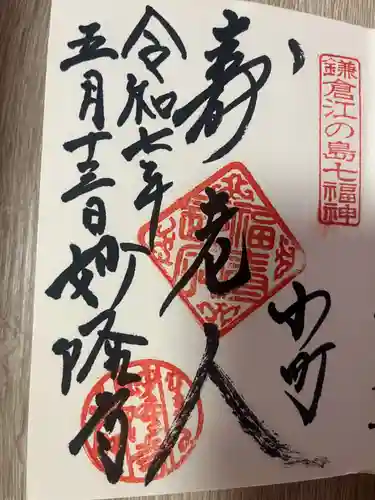 鎌倉江の島七福神
小町
寿老人
令和七年
五月十三日妙隆寺